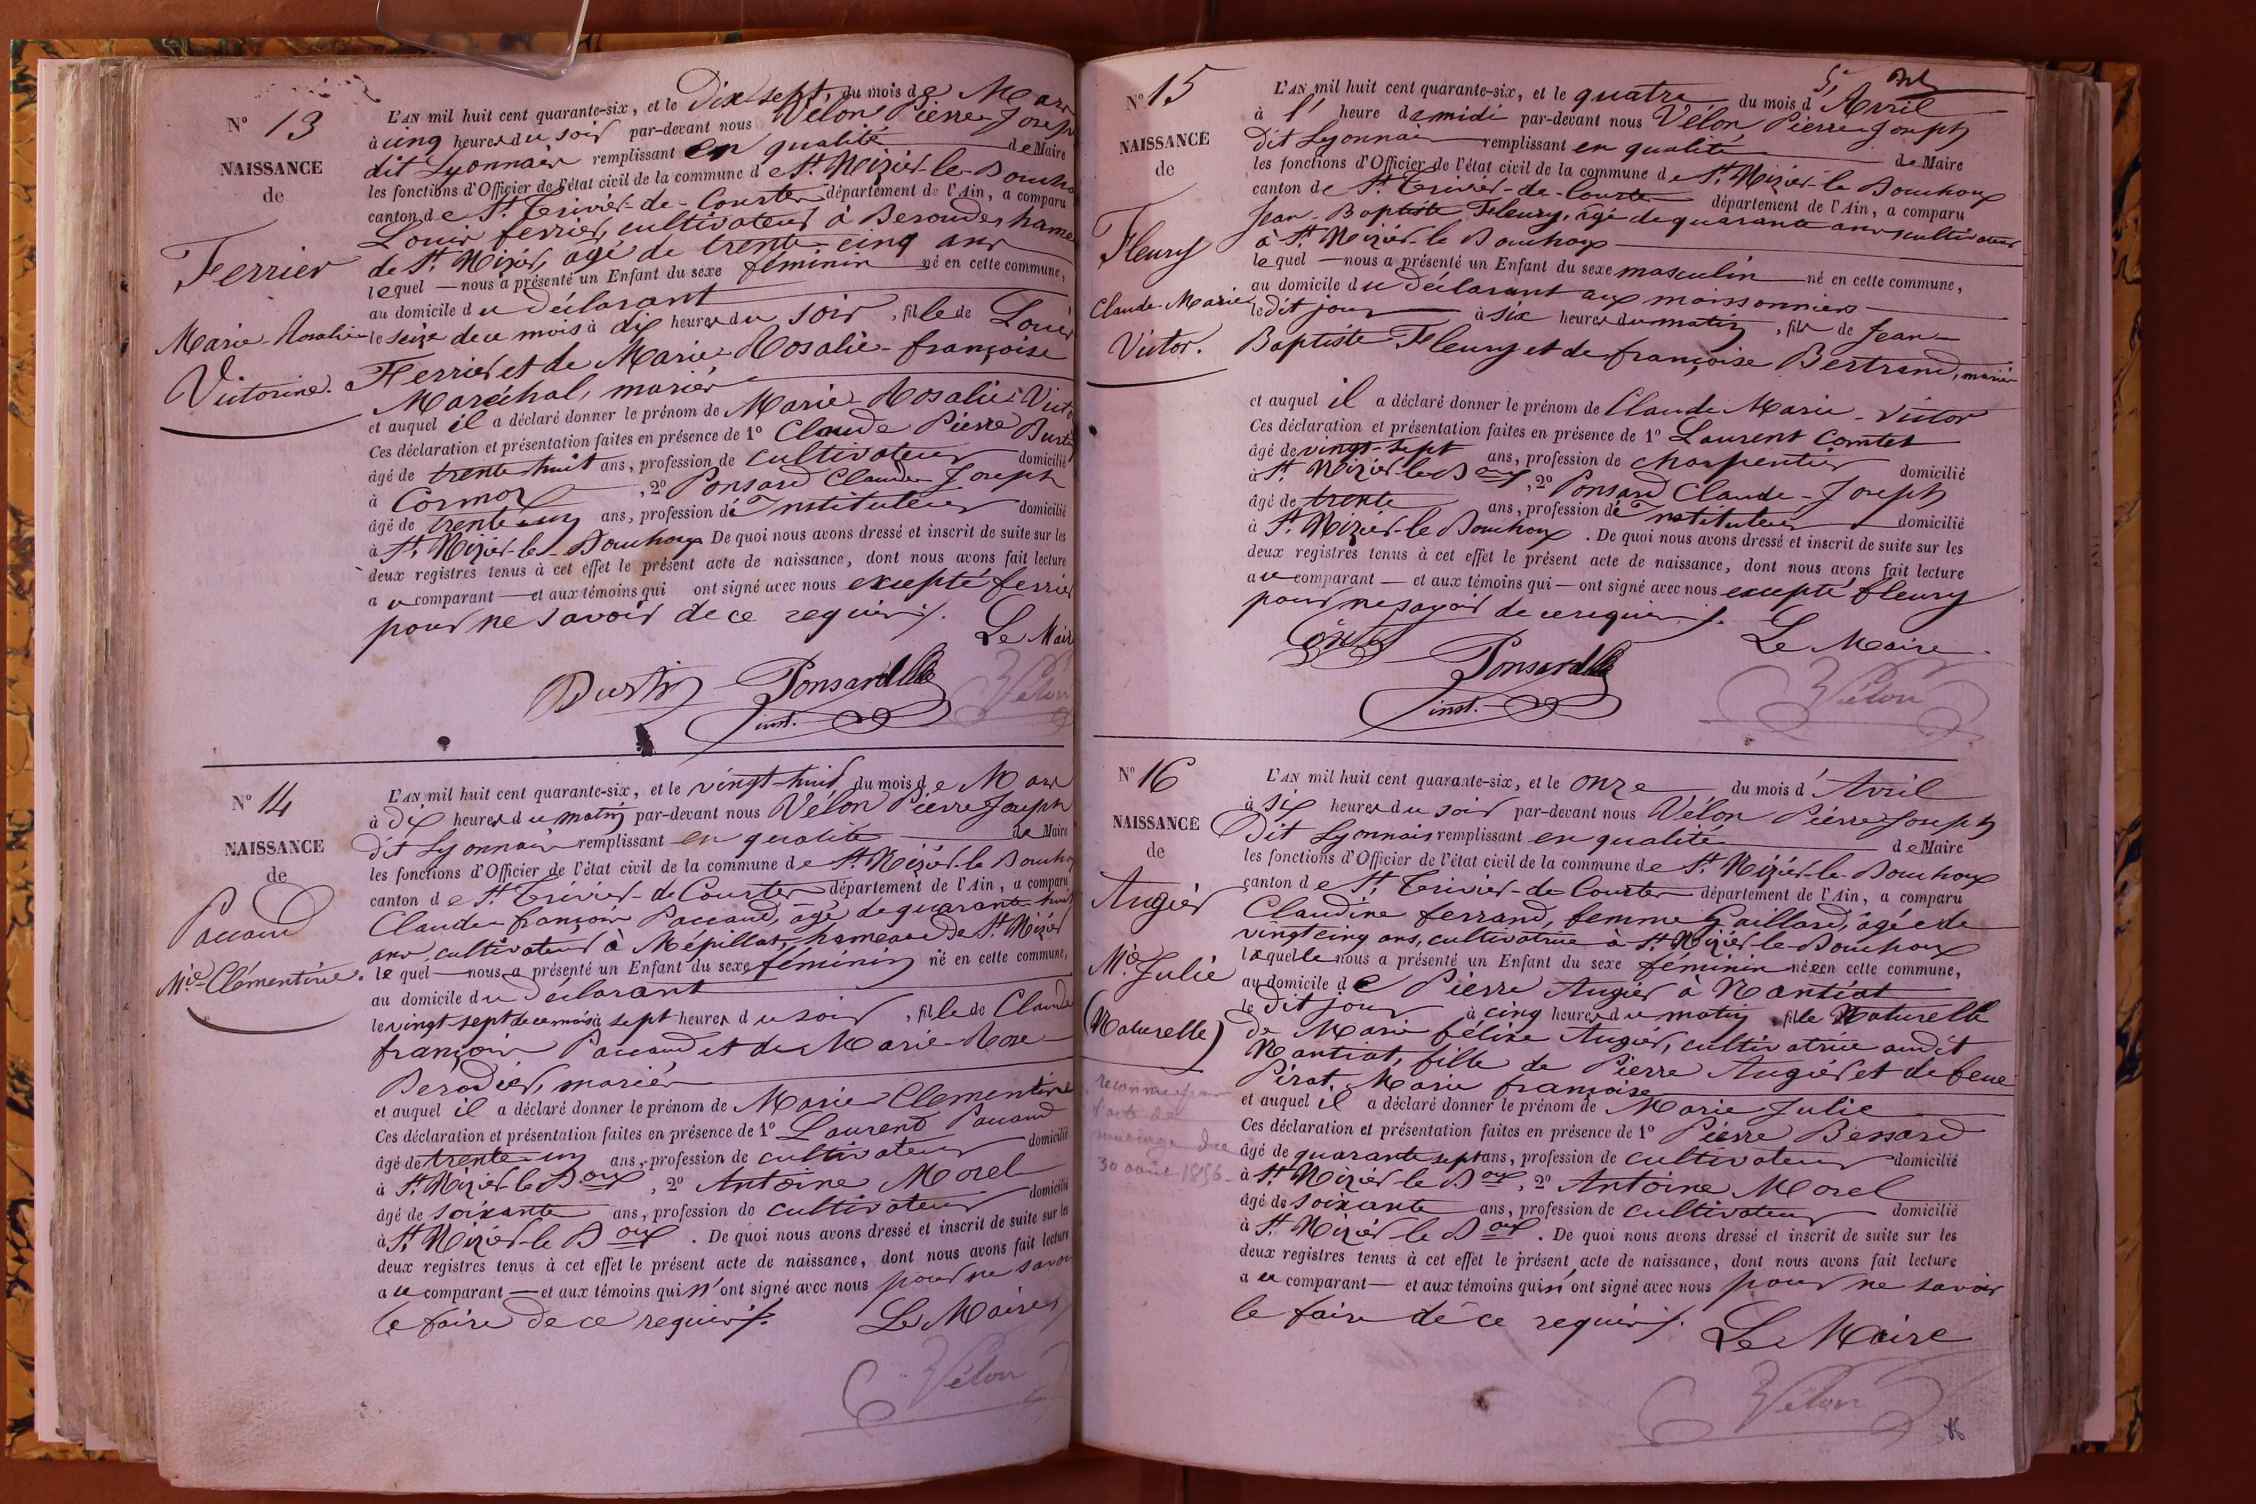 N° 13
NAISSANCE
de
Ferrier
Marie-Rosalie
Victorine.
L'AN mil huit cent quarante-six, et le Dix sept, du mois de Mars
à cinq heures du soir par-devant nous Vélon Pierre Joseph
dit Lyonnais remplissant en qualité de Maire
les fonctions d'Officier de l'état civil de la commune de St. Nizier-le-Boucho
canton de St. Trivier-de-Courtes département de l'Ain, a comparu
Louis ferrier, cultivateur à Beroudes hame
de St. Nizier, âgé de trente-cinq ans
lequel nous a présenté un Enfant du sexe féminin né en cette commune,
au domicile du Déclarant
le seize de ce mois à dix heures du soir, fille de Louis
Ferrier et de Marie-Rosalie-françoise
Maréchal, mariés
et auquel il a déclaré donner le prénom de Marie-Rosalie-Victo
Ces déclaration et présentation faites en présence de 1° Claude Pierre Burti
âgé de trente huit ans, profession de cultivateur domicilié
à Cormoz, 2° Ponsard Claude Joseph
âgé de trente-un ans, profession d'Instituteur domicilié
à St. Nizier-le-Bouchoux De quoi nous avons dressé et inscrit de suite sur les
deux registres tenus à cet effet le présent acte de naissance, dont nous avons fait lecture
au comparant et aux témoins qui ont signé avec nous excepté ferrier
pour ne savoir de ce requis ./.
Le Maire
Burtin Ponsard
inst. Vélon
N° 14
NAISSANCE
de
Paccaud
Mie. Clémentine.
L'AN mil huit cent quarante-six, et le vingt-huit du mois de Mars
à dix heures du matin par-devant nous Vélon Pierre Joseph
dit Lyonnais remplissant en qualité de Maire
les fonctions d'Officier de l'état civil de la commune de St. Nizier-le Boucho
canton de St. Trivier-de Courtes département de l'Ain, a comparu
Claude-françois Paccaud, âgé de quarante-huit
ans, cultivateur à Mépillat, hameau de St. Nizier
lequel nous a présenté un Enfant du sexe féminin né en cette commune,
au domicile du Déclarant
le vingt sept de ce mois à sept heures du soir, fille de Claude
françois Paccaud et de Marie-Rose
Berodier, mariés
et auquel il a déclaré donner le prénom de Marie Clementine
Ces déclaration et présentation faites en présence de 1° Laurend Paccaud
âgé de trente-un ans, profession de cultivateur domicilié
à St. Nizier le Boux, 2° Antoine Morel
âgé de soixante ans, profession de cultivateur domicilié
à St. Nizier-le Boux. De quoi nous avons dressé et inscrit de suite sur les
deux registres tenus à cet effet le présent acte de naissance, dont nous avons fait lecture
au comparant et aux témoins qui n'ont signé avec nous pour ne savoir
le faire de ce requis ./.
Le Maire
Vélon
N° 15
NAISSANCE
de
Fleury
Claude-Marie
Victor.
L'AN mil huit cent quarante-six, et le quatre du mois d'Avril
à l' heure de midi par-devant nous Vélon Pierre Joseph
Dit Lyonnais remplissant en qualité de Maire
les fonctions d'Officier de l'état civil de la commune de St. Nizier-le Bouchoux
canton de St. Trivier-de-Courtes département de l'Ain, a comparu
Jean-Baptiste Fleury, âgé de quarante ans cultivateur
à St. Nizier-le Bouchoux
lequel nous a présenté un Enfant du sexe masculin né en cette commune,
au domicile du Déclarant aux moissonniers
le dit jour à six heures du matin, fils de Jean-
Baptiste Fleury et de françoise Bertrand, mariés
et auquel il a déclaré donner le prénom de Claude Marie-Victor
Ces déclaration et présentation faites en présence de 1° Laurent Comtet
âgé de vingt-sept ans, profession de charpentier domicilié
à St. Nizier-le Boux, 2° Ponsard Claude-Joseph
âgé de trente ans, profession d'Instituteur domicilié
à St. Nizier-le Bouchoux. De quoi nous avons dressé et inscrit de suite sur les
deux registres tenus à cet effet le présent acte de naissance, dont nous avons fait lecture
au comparant et aux témoins qui ont signé avec nous excepté fleury
pour ne savoir de ce requis ./.
Le Maire
Ponsard
inst. Vélon
N° 16
NAISSANCE
de
Augier
Mie. Julie
(Naturelle)
reconnue par
l'acte de
mariage du
30 août 1856
L'AN mil huit cent quarante-six, et le onze du mois d'Avril
à six heures du soir par-devant nous Vélon Pierre Joseph
Dit Lyonnais remplissant en qualité de Maire
les fonctions d'Officier de l'état civil de la commune de St. Nizier-le-Bouchoux
canton de St. Trivier-de Courtes département de l'Ain, a comparu
Claudine ferrand, femme Gaillard, âgée de
vingt cinq ans, cultivatrice à St. Nizier-le-Bouchoux
laquelle nous a présenté un Enfant du sexe féminin née en cette commune,
au domicile de Pierre Augier à Nantiat
le Dit jour à cinq heures du matin, fille Naturelle
de Marie féline Augier, cultivatrice audit
Nantiat, fille de Pierre Augier et de feue
Pirat Marie françoise
et auquel il a déclaré donner le prénom de Marie Julie
Ces déclaration et présentation faites en présence de 1° Pierre Bessard
âgé de quarante sept ans, profession de cultivateur domicilié
à St. Nizier le Boux, 2° Antoine Morel
âgé de soixante ans, profession de cultivateur domicilié
à St. Nizier le Boux. De quoi nous avons dressé et inscrit de suite sur les
deux registres tenus à cet effet le présent acte de naissance, dont nous avons fait lecture
au comparant et aux témoins qui n'ont signé avec nous pour ne savoir
le faire de ce requis ./.
Le Maire
Vélon